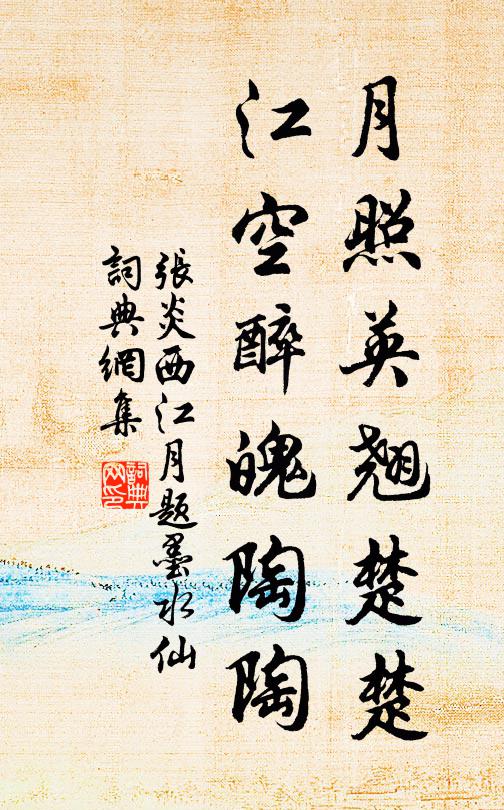 月照英翹楚楚
江空醉魄陶陶
張炎西江月題墨水仙
詞典網集
詞典網印